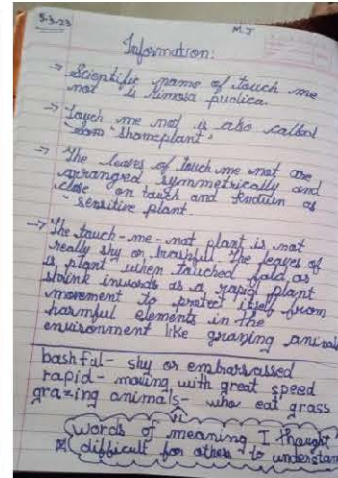 5-3-23
M.J
Information:
→ Scientific name of touch me
not is Mimosa pudica.
→ Touch me not is also called
"shameplant".
→ The leaves of touch me not are
arranged symmetrically and
close on touch and as
sensitive plant.
→ The touch-me-not plant is not
really shy or bashful the leaves of
is plant when touched fold as
shrink inwards as a rapid plant
movement to protect itself from
harmful elements in the
environment like grazing animals
bashful- shy or embarrassed
rapid- moving with great speed
grazing animals- who eat grass
words of meaning I thought
difficult for others to understand